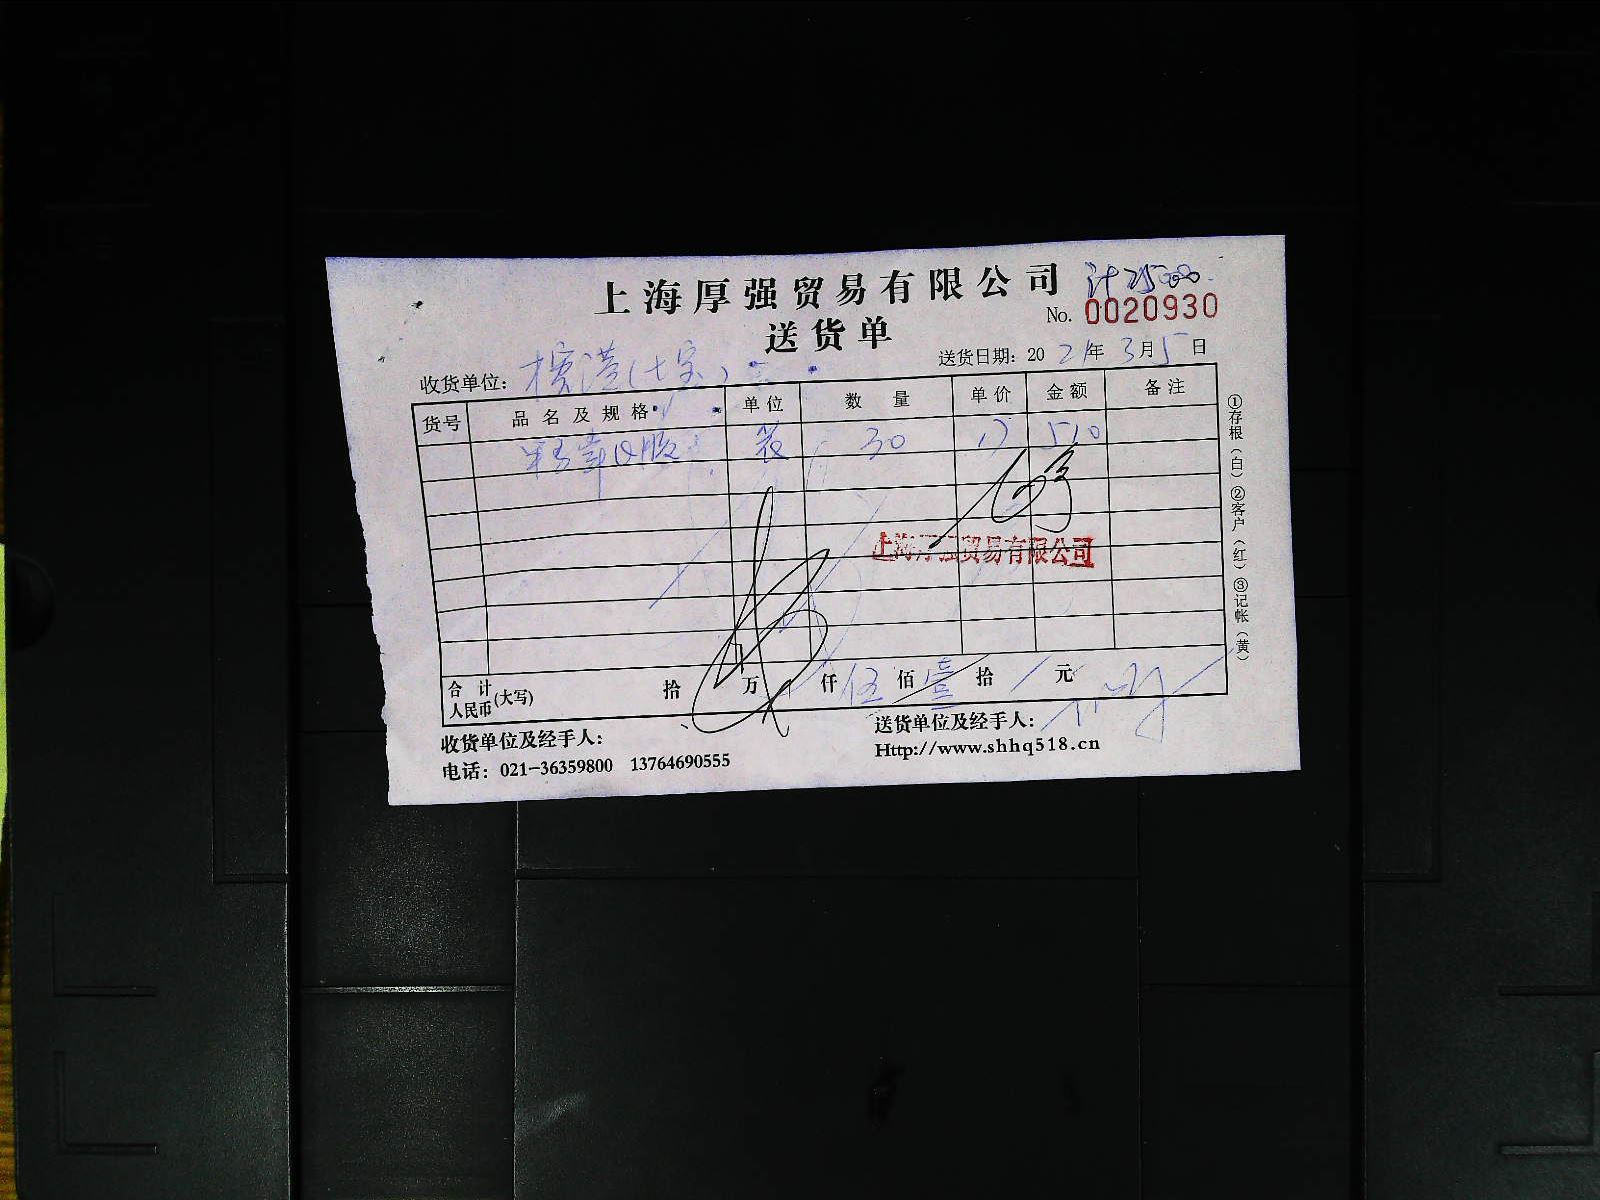 上海厚强贸易有限公司
No. 0020930
送货单
送货日期：2021年3月5日
收货单位：
货号 品名及规格 单位 数量 单价 金额 备注
30 17 510
上海厚强贸易有限公司
合计人民币(大写) 拾 万 仟 伍佰 壹拾 元
收货单位及经手人：
送货单位及经手人：
电话：021-36359800 13764690555
Http://www.shhq518.cn
①存根（白）②客户（红）③记帐（黄）